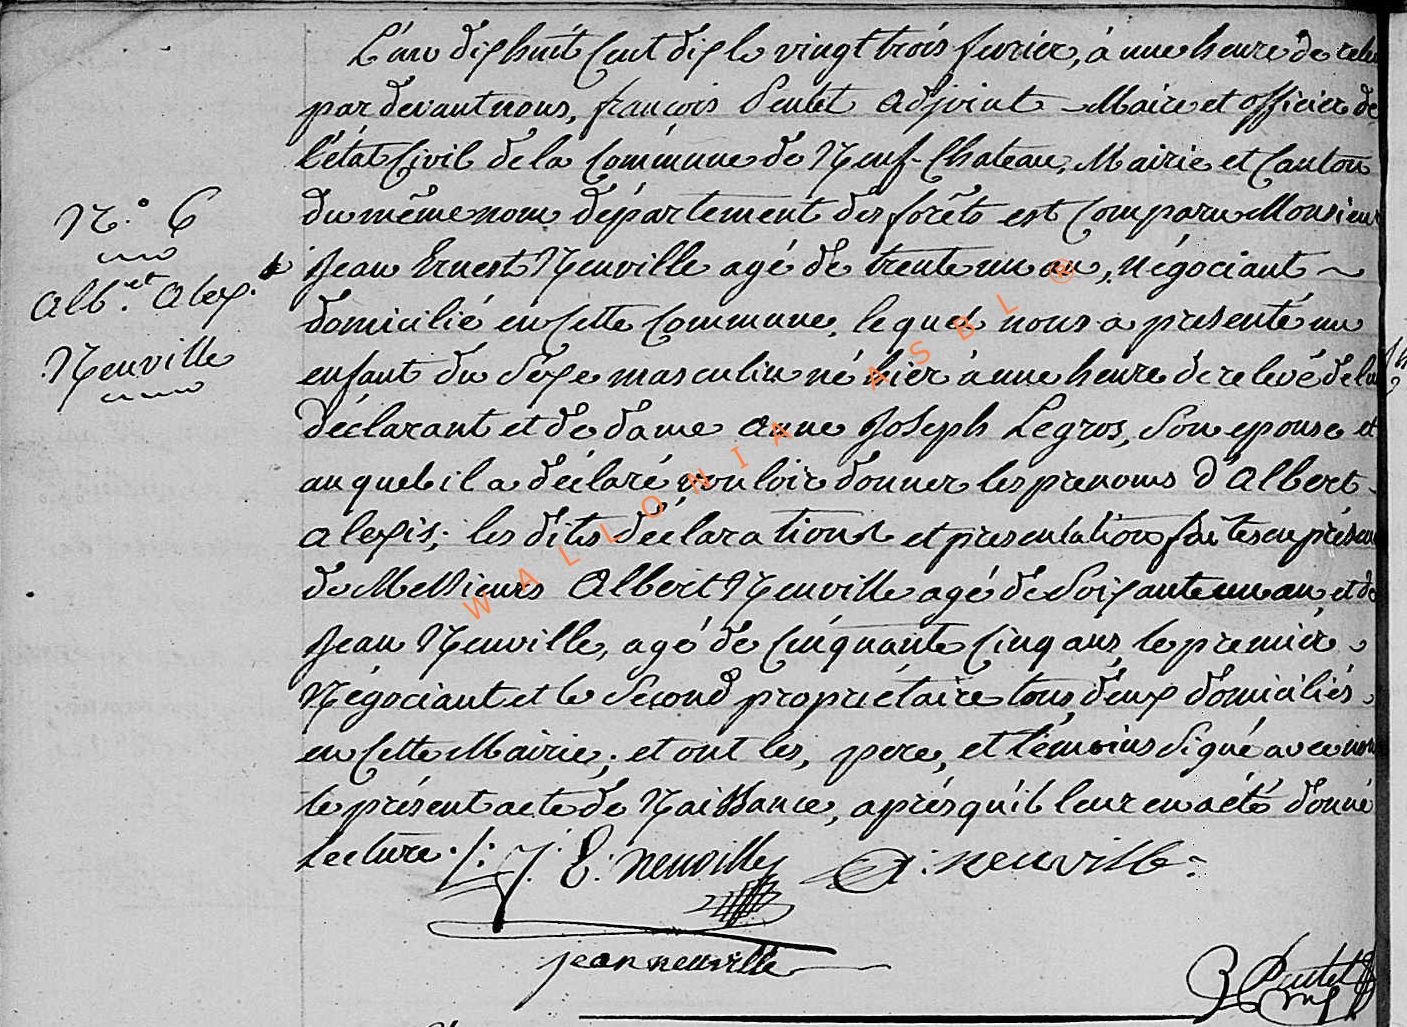 L'an dix huit Cent dix le vingt trois fevrier, à une heure de rele
par devant nous, françois Pentet adjoint Maire et officier de
l'état Civil de la Commune de Neuf-Chateau, Mairie et Canton
du même nom département des forêts est Comparu Monsieur
Jean Ernest Neuville agé de trente un an, négociant
domicilié en Cette Commune, lequel nous a presenté un
enfant du Séxe masculin né hier à une heure de relevé de lui
déclarant et de dame anne Joseph Legros, Son epouse et
auquel il a déclaré vouloir donner les prenoms d'Albert
alexis; les dites déclarations et presentation faites en présen
de Messieurs Albert Neuville agé de Soixante un an, et de
Jean Neuville, agé de Cinquante Cinq ans, le premier
Négociant et le Second propriétaire tous deux domiciliés
en Cette Mairie; et ont les, pere, et témoins Signé avec nous
le présent acte de Naissance, aprés qu'il leur en a été donné
Lecture./.
N.° 6
Alb.et Alex.
Neuville
J: E: neuville
A: neuville
jean neuville
WALLONIA ASBL ®